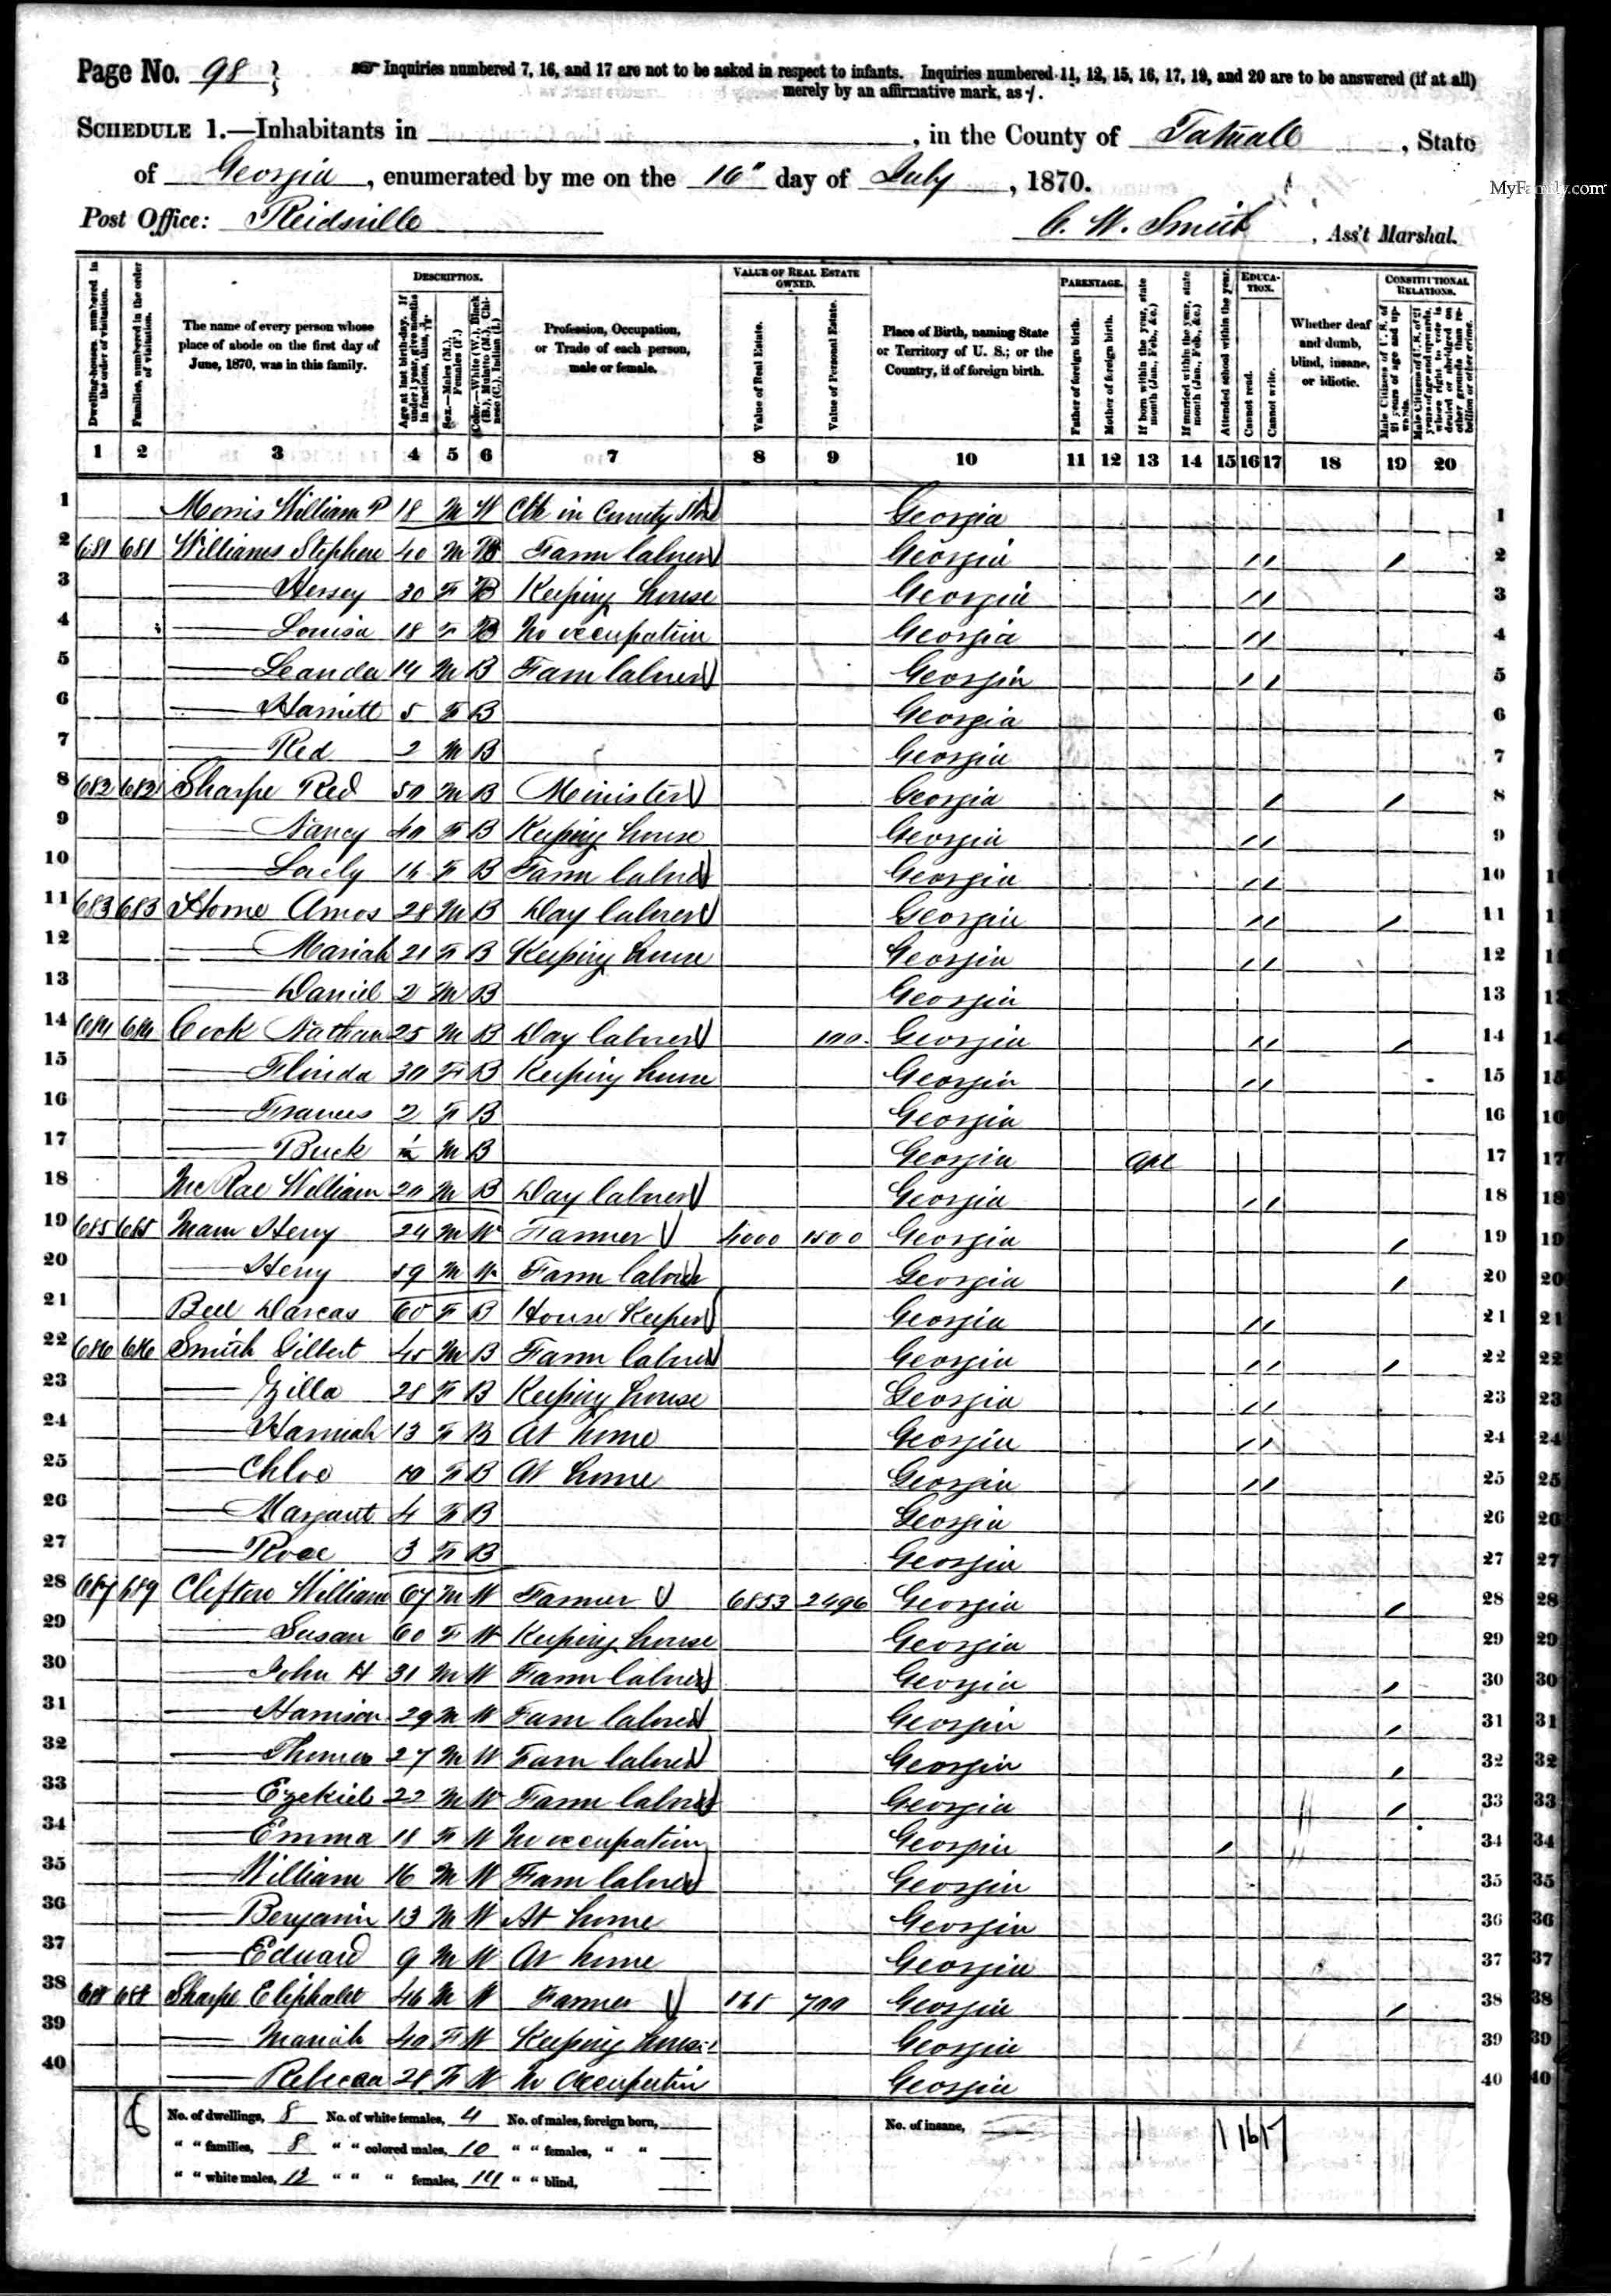 Page No. 98
Inquiries numbered 7, 16, and 17 are not to be asked in respect to infants. Inquiries numbered 11, 12, 15, 16, 17, 19, and 20 are to be answered (if at all)
merely by an affirmative mark, as /.
SCHEDULE 1.—Inhabitants in , in the County of Tatnall, State
of Georgia, enumerated by me on the 16" day of July, 1870.
MyFamily.com
Post Office: Reidsville
C. W. Smith, Ass't Marshal.
Dwelling-houses, numbered in the order of visitation.
Families, numbered in the order of visitation.
The name of every person whose place of abode on the first day of June, 1870, was in this family.
DESCRIPTION.
Age at last birth-day. If under 1 year, give months in fractions, thus, 3/12.
Sex.—Males (M.), Females (F.)
Color.—White (W.), Black (B.), Mulatto (M.), Chinese (C.), Indian (I.)
Profession, Occupation, or Trade of each person, male or female.
VALUE OF REAL ESTATE OWNED.
Value of Real Estate.
Value of Personal Estate.
Place of Birth, naming State or Territory of U. S.; or the Country, if of foreign birth.
PARENTAGE.
Father of foreign birth.
Mother of foreign birth.
If born within the year, state month (Jan., Feb., &c.)
If married within the year, state month (Jan., Feb., &c.)
Attended school within the year.
EDUCATION.
Cannot read.
Cannot write.
Whether deaf and dumb, blind, insane, or idiotic.
CONSTITUTIONAL RELATIONS.
Male Citizens of U. S. of 21 years of age and upwards.
Male Citizens of U. S. of 21 years of age and upwards, whose right to vote is denied or abridged on other grounds than rebellion or other crime.
1 2 3 4 5 6 7 8 9 10 11 12 13 14 15 16 17 18 19 20
1 Morris William P 18 M W Clk in County Store Georgia 1
2 681 681 Williams Stephen 40 M B Farm laborer Georgia / / / 2
3 — Hersey 30 F B Keeping house Georgia / / 3
4 — Louisa 18 F B No occupation Georgia / / 4
5 — Leanda 14 M B Farm laborer Georgia / / 5
6 — Harriett 5 F B Georgia 6
7 — Red 2 M B Georgia 7
8 682 682 Sharpe Red 50 M B Minister Georgia / / 8
9 — Nancy 40 F B Keeping house Georgia / / 9
10 — 16 F B Farm laborer Georgia / / 10
11 683 683 Horne Amos 28 M B Day laborer Georgia / / / 11
12 — Mariah 21 F B Keeping house Georgia / / 12
13 — Daniel 2 M B Georgia 13
14 684 684 Cook Nathan 25 M B Day laborer 100 Georgia / / / 14
15 — Flinda 30 F B Keeping house Georgia / / 15
16 — Frances 2 F B Georgia 16
17 — Buck M B Georgia Apl 17
18 McRae William 20 M B Day laborer Georgia / / 18
19 685 685 Mann Henry 24 M W Farmer 4000 1500 Georgia / 19
20 — Henry 59 M W Farm laborer Georgia / 20
21 Bell Darcas 60 F B House Keeper Georgia / / 21
22 686 686 Smith Gilbert 45 M B Farm laborer Georgia / / / 22
23 — Zilla 28 F B Keeping house Georgia / / 23
24 — Hannah 13 F B At home Georgia / / 24
25 — Chloe 10 F B At home Georgia / / 25
26 — Margaret 4 F B Georgia 26
27 — Rose 3 F B Georgia 27
28 687 689 Clifton William 67 M W Farmer 6853 2496 Georgia / 28
29 — Susan 60 F W Keeping house Georgia 29
30 — John H 31 M W Farm laborer Georgia / 30
31 — Harrison 29 M W Farm laborer Georgia / 31
32 — Thomas 27 M W Farm laborer Georgia / 32
33 — Ezekiel 22 M W Farm laborer Georgia / 33
34 — Emma 18 F W No occupation Georgia / 34
35 — William 16 M W Farm laborer Georgia 35
36 — Benjamin 13 M W At home Georgia 36
37 — Edward 9 M W At home Georgia 37
38 688 688 Sharpe Eliphalet 46 M W Farmer 165 700 Georgia / 38
39 — Mariah 40 F W Keeping house Georgia 39
40 — Rebecca 28 F W No Occupation Georgia 40
No. of dwellings, 8 No. of white females, 4 No. of males, foreign born, No. of insane, 1 1 16 15
" " families, 8 " " colored males, 10 " " females, " "
" " white males, 12 " " " females, 14 " " blind,